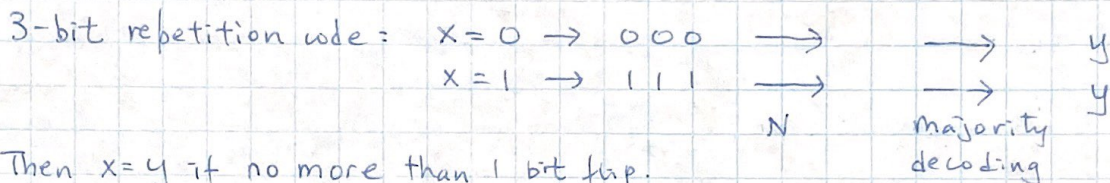 3-bit repetition code : x = 0 → 000 → → y
x = 1 → 111 → → y
N majority
decoding
Then x = y if no more than 1 bit flip.